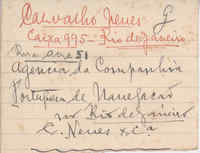 Carvalho Neves G
Caixa 995 - Rio de Janeiro
Rua 51
Agencia da Companhia
Portuguesa de Navegacao
no Rio de Janeiro
C. Neves & Cª